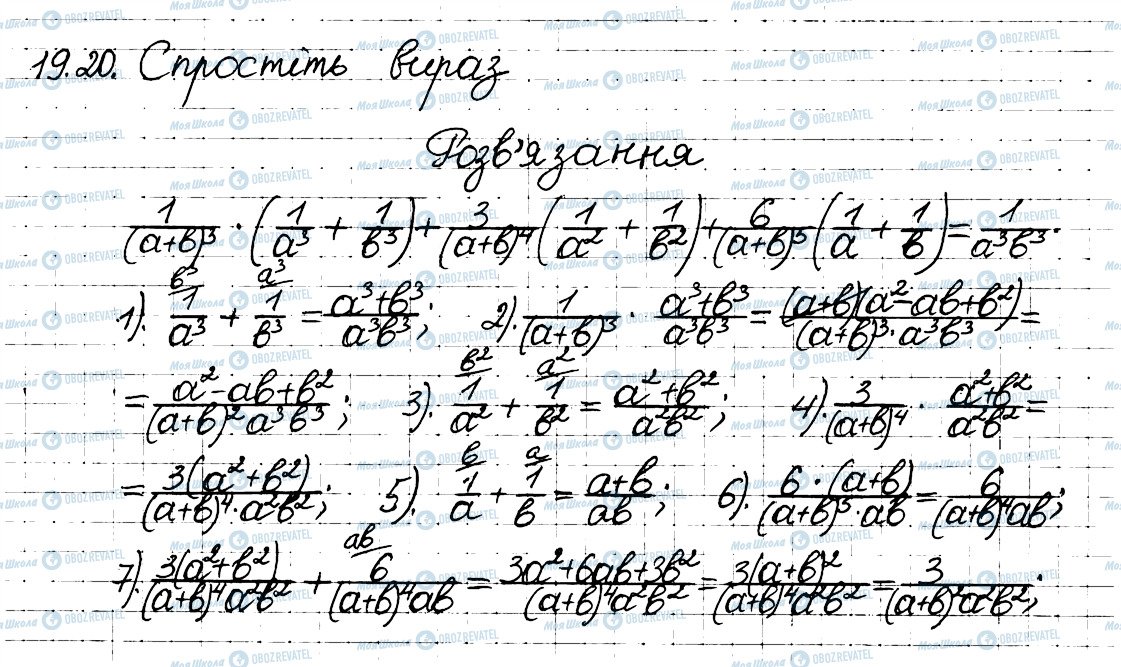 19.20. Спростіть вираз
Розв'язання
1/(a+b)³ · (1/a³ + 1/b³) + 3/(a+b)⁴ (1/a² + 1/b²) + 6/(a+b)⁵ · (1/a + 1/b) = 1/a³b³.
1). b³/ 1/a³ + a³/ 1/b³ = a³+b³/a³b³; 2). 1/(a+b)³ · a³+b³/a³b³ = (a+b)(a²-ab+b²)/(a+b)³·a³b³ =
= a²-ab+b²/(a+b)²·a³b³; 3). b²/ 1/a² + a²/ 1/b² = a²+b²/a²b²; 4). 3/(a+b)⁴ · a²+b²/a²b² =
= 3(a²+b²)/(a+b)⁴·a²b²; 5). b/ 1/a + a/ 1/b = a+b/ab; 6). 6·(a+b)/(a+b)⁵·ab = 6/(a+b)⁴ab;
7). 3(a²+b²)/(a+b)⁴a²b² + ab/ 6/(a+b)⁴ab = 3a²+6ab+3b²/(a+b)⁴a²b² = 3(a+b)²/(a+b)⁴a²b² = 3/(a+b)²a²b²;